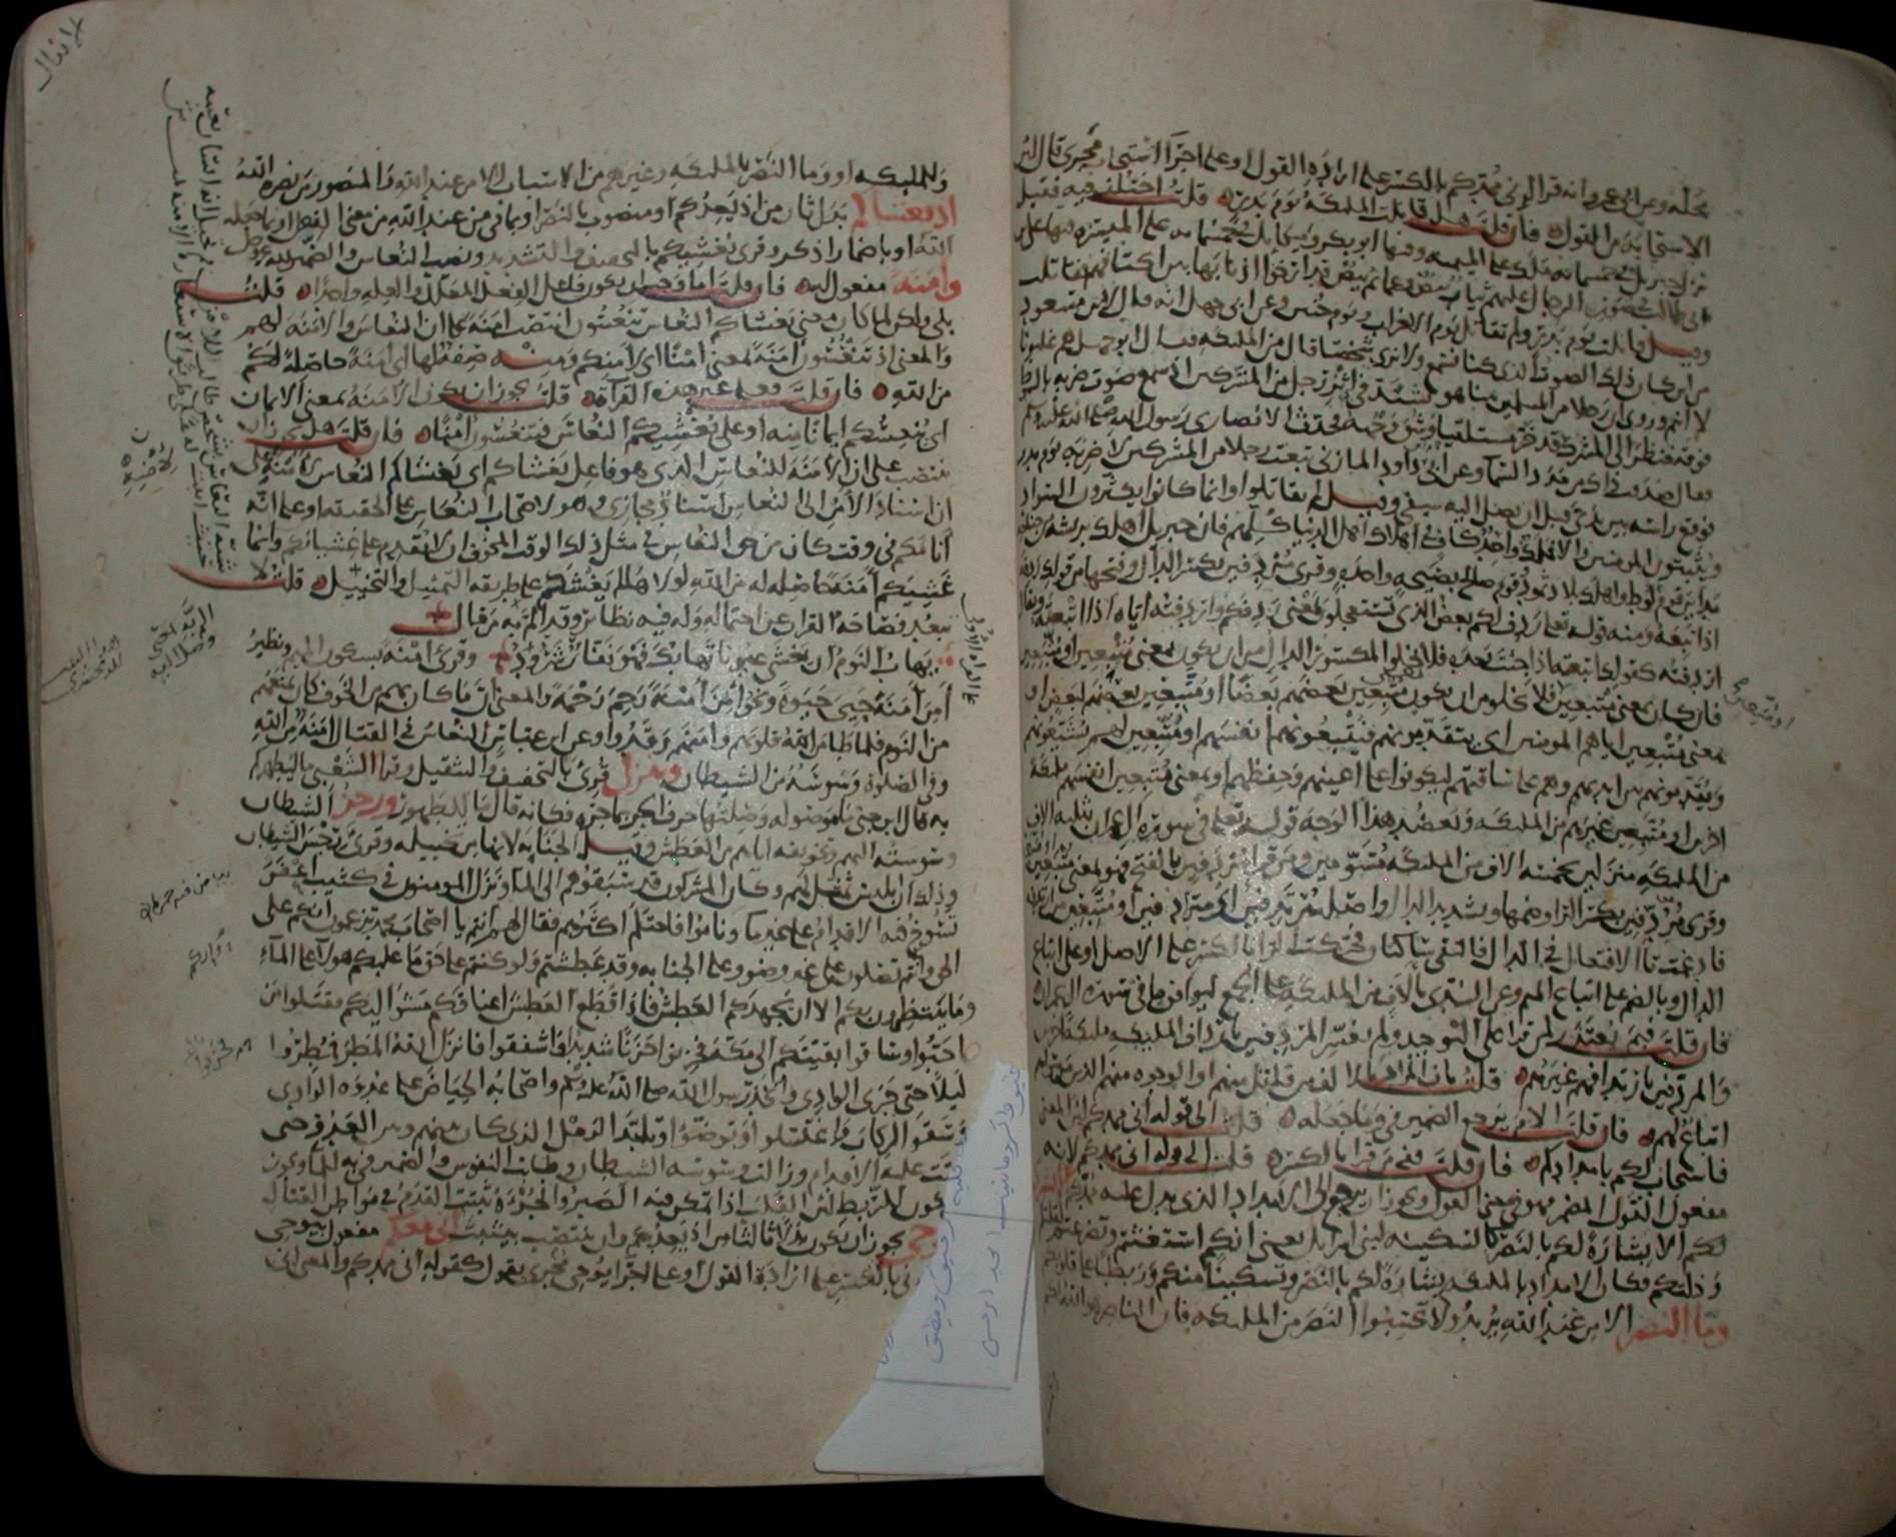 محله وعن ابى عمرو انه قرا انى ممدكم بالكسر على ارادة القول او على اجرا استجاب مجرى قال لان
الاستجابة من القول فان قلت هل قاتلت الملئكة يوم بدر قلت اختلف فيه فقيل
نزل جبريل فى خمسمائة ملك على الميمنة وفيها ابو بكر وميكايل فى خمسمائة على الميسرة وفيها على بن
ابى طالب فى صور الرجال عليهم ثياب بيض وعمائم بيض قد ارخوا اذنابها بين اكتافهم فقاتلت
وقيل قاتلت يوم بدر ولم تقاتل يوم الاحزاب ويوم حنين وعن ابى جهل انه قال لابن مسعود
من اين كان ذلك الصوت الذى كنا نسمع ولا نرى شخصا قال من الملئكة فقال ابو جهل هم غلبونا
لا انتم وروى ان رجلا من المسلمين بينا هو يشتد فى اثر رجل من المشركين اذ سمع صوت ضربة بالسوط
فوقه فنظر الى المشرك قد خر مستلقيا وشق وجهه فحدث الانصارى رسول الله صلى الله عليه وسلم
فقال صدقت ذاك من مدد السما وعن ابى داود المازنى تبعت رجلا من المشركين لاضربه يوم بدر
فوقع راسه بين يدى قبل ان يصل اليه سيفى وقيل لم يقاتلوا وانما كانوا يكثرون السواد
ويثبتون المومنين والا فملك واحد كاف فى اهلاك اهل الدنيا كلهم فان جبريل اهلك بريشة من جناحه
مداين قوم لوط واهلك بلاد ثمود قوم صالح بصيحة واحدة وقرى مردفين بكسر الدال وفتحها من قولك ردفه
اذا تبعه ومنه قوله تعالى ردف لكم بعض الذى تستعجلون بمعنى ردفكم واردفته اياه اذا اتبعته ويقال
اردفته كقولك اتبعته اذا جئت بعده فلا يخلو المكسور الدال من ان يكون بمعنى متبعين او متبعين
فان كان بمعنى متبعين فلا يخلو من ان يكون متبعين بعضهم بعضا او متبعين بعضهم لبعض او
بمعنى متبعين اياهم المومنين اى يتقدمونهم فيتبعونهم انفسهم او متبعين لهم يشيعونهم
ويقدمونهم بين ايديهم وهم على ساقتهم ليكونوا على اعينهم وحفظهم او بمعنى متبعين انفسهم ملئكة
اخرين او متبعين غيرهم من الملئكة ويعضد هذا الوجه قوله تعالى فى سورة ال عمران بثلثة الاف
من الملئكة منزلين بخمسة الاف من الملئكة مسومين ومن قرا مردفين بالفتح فهو بمعنى متبعين
وقرى مردفين بكسر الرا وضمها وتشديد الدال واصله مرتدفين اى مترادفين او متبعين من ارتدفه
فادغمت تا الافتعال فى الدال فالتقى ساكنان فحركت الرا بالكسر على الاصل او على اتباع
الدال وبالضم على اتباع الميم وعن السدى بالاف من الملئكة على الجمع ليوافق ما فى سورة ال عمران
فان قلت فبم يعتذر لمن قرا على التوحيد ولم يفسر المردفين بارداف الملئكة ملئكة اخرين
والمردفين بارتدافهم غيرهم قلت بان المراد بالالف من قاتل منهم او الوجوه منهم الذين من سواهم
اتباع لهم فان قلت الام يرجع الضمير فى وما جعله قلت الى قوله انى ممدكم لان المعنى
فاستجاب لكم بامدادكم فان قلت ففى من قرا بالكسر قلت الى قوله انى ممدكم لانه
مفعول القول المضمر فهو فى معنى القول ويجوز ان يرجع الى الامداد الذى يدل عليه ممدكم الا بشرى
لكم الا بشارة لكم بالنصر كالسكينة لبنى اسرايل يعنى انكم استغثتم وتضرعتم لقلتكم
وذلتكم فكان الامداد بالملئكة بشارة لكم بالنصر وتسكينا منكم وربطا على قلوبكم
وما النصر الا من عند الله يريد ولا تحسبوا النصر من الملئكة فان الناصر هو الله لكم
او متبعين
وللملئكة او وما النصر بالملئكة وغيرهم من الاسباب الا من عند الله والمنصور من نصره الله
اذ يغشاكم بدل ثان من اذ يعدكم او منصوب بالنصر او بما فى من عند الله من معنى الفعل او بما جعله
الله او باضمار اذكر وقرى يغشيكم بالتخفيف والتشديد ونصب النعاس والضمير لله عز وجل
وامنة مفعول له فان قلت اما وجب ان يكون فاعل الفعل المعلل والعلة واحدا قلت
بلى ولكن لما كان معنى يغشاكم النعاس تنعسون انتصب امنة على ان النعاس والامنة لهم
والمعنى اذ تنعسون امنة بمعنى امنا اى لامنكم ومنه صفة لها اى امنة حاصلة لكم
من الله فان قلت فعلى غير هذه القراة قلت يجوز ان يكون الامنة بمعنى الايمان
اى ينعسكم ايمانا منه او على يغشيكم النعاس فتنعسون امنا فان قلت هل يجوز ان
ينتصب على ان الامنة للنعاس الذى هو فاعل يغشاكم اى يغشاكم النعاس لامنه على
ان اسناد الامن الى النعاس اسناد مجازى وهو لاصحاب النعاس على الحقيقة او على انه
انامكم فى وقت كان من حق النعاس فى مثل ذلك الوقت المخوف ان لا يقدم على غشيانكم وانما
غشيكم امنة حاصلة له من الله لولاها لم يغشكم على طريقة التمثيل والتخييل قلت لا
تبعد فصاحة القران عن احتماله وله فيه نظائر وقد الم به من قال
يهاب النوم ان يغشى عيونا تهابك فهو نفار شرود وقرى امنة بسكون الميم ونظير
امن امنة حيى حيوة ونحو امن امنة رحم رحمة والمعنى ان ما كان بهم من الخوف كان يمنعهم
من النوم فلما طامن الله قلوبهم وامنهم رقدوا وعن ابن عباس النعاس فى القتال امنة من الله
وفى الصلوة وسوسة من الشيطان وينزل قرى بالتخفيف والتثقيل وقرا الشعبى ما ليطهركم
به قال ابن جنى ما موصولة وصلتها حرف الجر بما جره فكانه قال ما للطهور ورجز الشيطان
وسوسته اليهم وتخويفه اياهم من العطش وقيل الجنابة لانها من تخييله وقرى رجس الشيطان
وذلك ان ابليس تمثل لهم وكان المشركون قد سبقوهم الى الما ونزل المومنون فى كثيب اعفر
تسوخ فيه الاقدام على غير ما وناموا فاحتلم اكثرهم فقال لهم انتم يا اصحاب محمد تزعمون انكم على
الحق وانكم تصلون على غير وضو وعلى الجنابة وقد عطشتم ولو كنتم على حق ما غلبكم هولا على الما
وما ينتظرون بكم الا ان يجهدكم العطش فاذا قطع العطش اعناقكم مشوا اليكم فقتلوا من
احبوا وساقوا بقيتكم الى مكة فحزنوا حزنا شديدا واشفقوا فانزل الله المطر فمطروا
ليلا حتى جرى الوادى واتخذ رسول الله صلى الله عليه وسلم واصحابه الحياض على عدوة الوادى
وسقوا الركاب واغتسلوا وتوضؤا وتلبد الرمل الذى كان بينهم وبين العدو حتى
ثبتت عليه الاقدام وزالت وسوسة الشيطان وطابت النفوس والضمير فى به للما ويجوز
ان يكون للربط لان القلب اذا تمكن فيه الصبر والجراة ثبتت القدم فى مواطن القتال
يجوز ان يكون بدلا ثالثا من اذ يعدكم وان ينتصب بيثبت انى معكم مفعول يوحى
بالكسر على ارادة القول او على اجرا يوحى مجرى يقول كقوله انى ممدكم والمعنى انى
الانفال